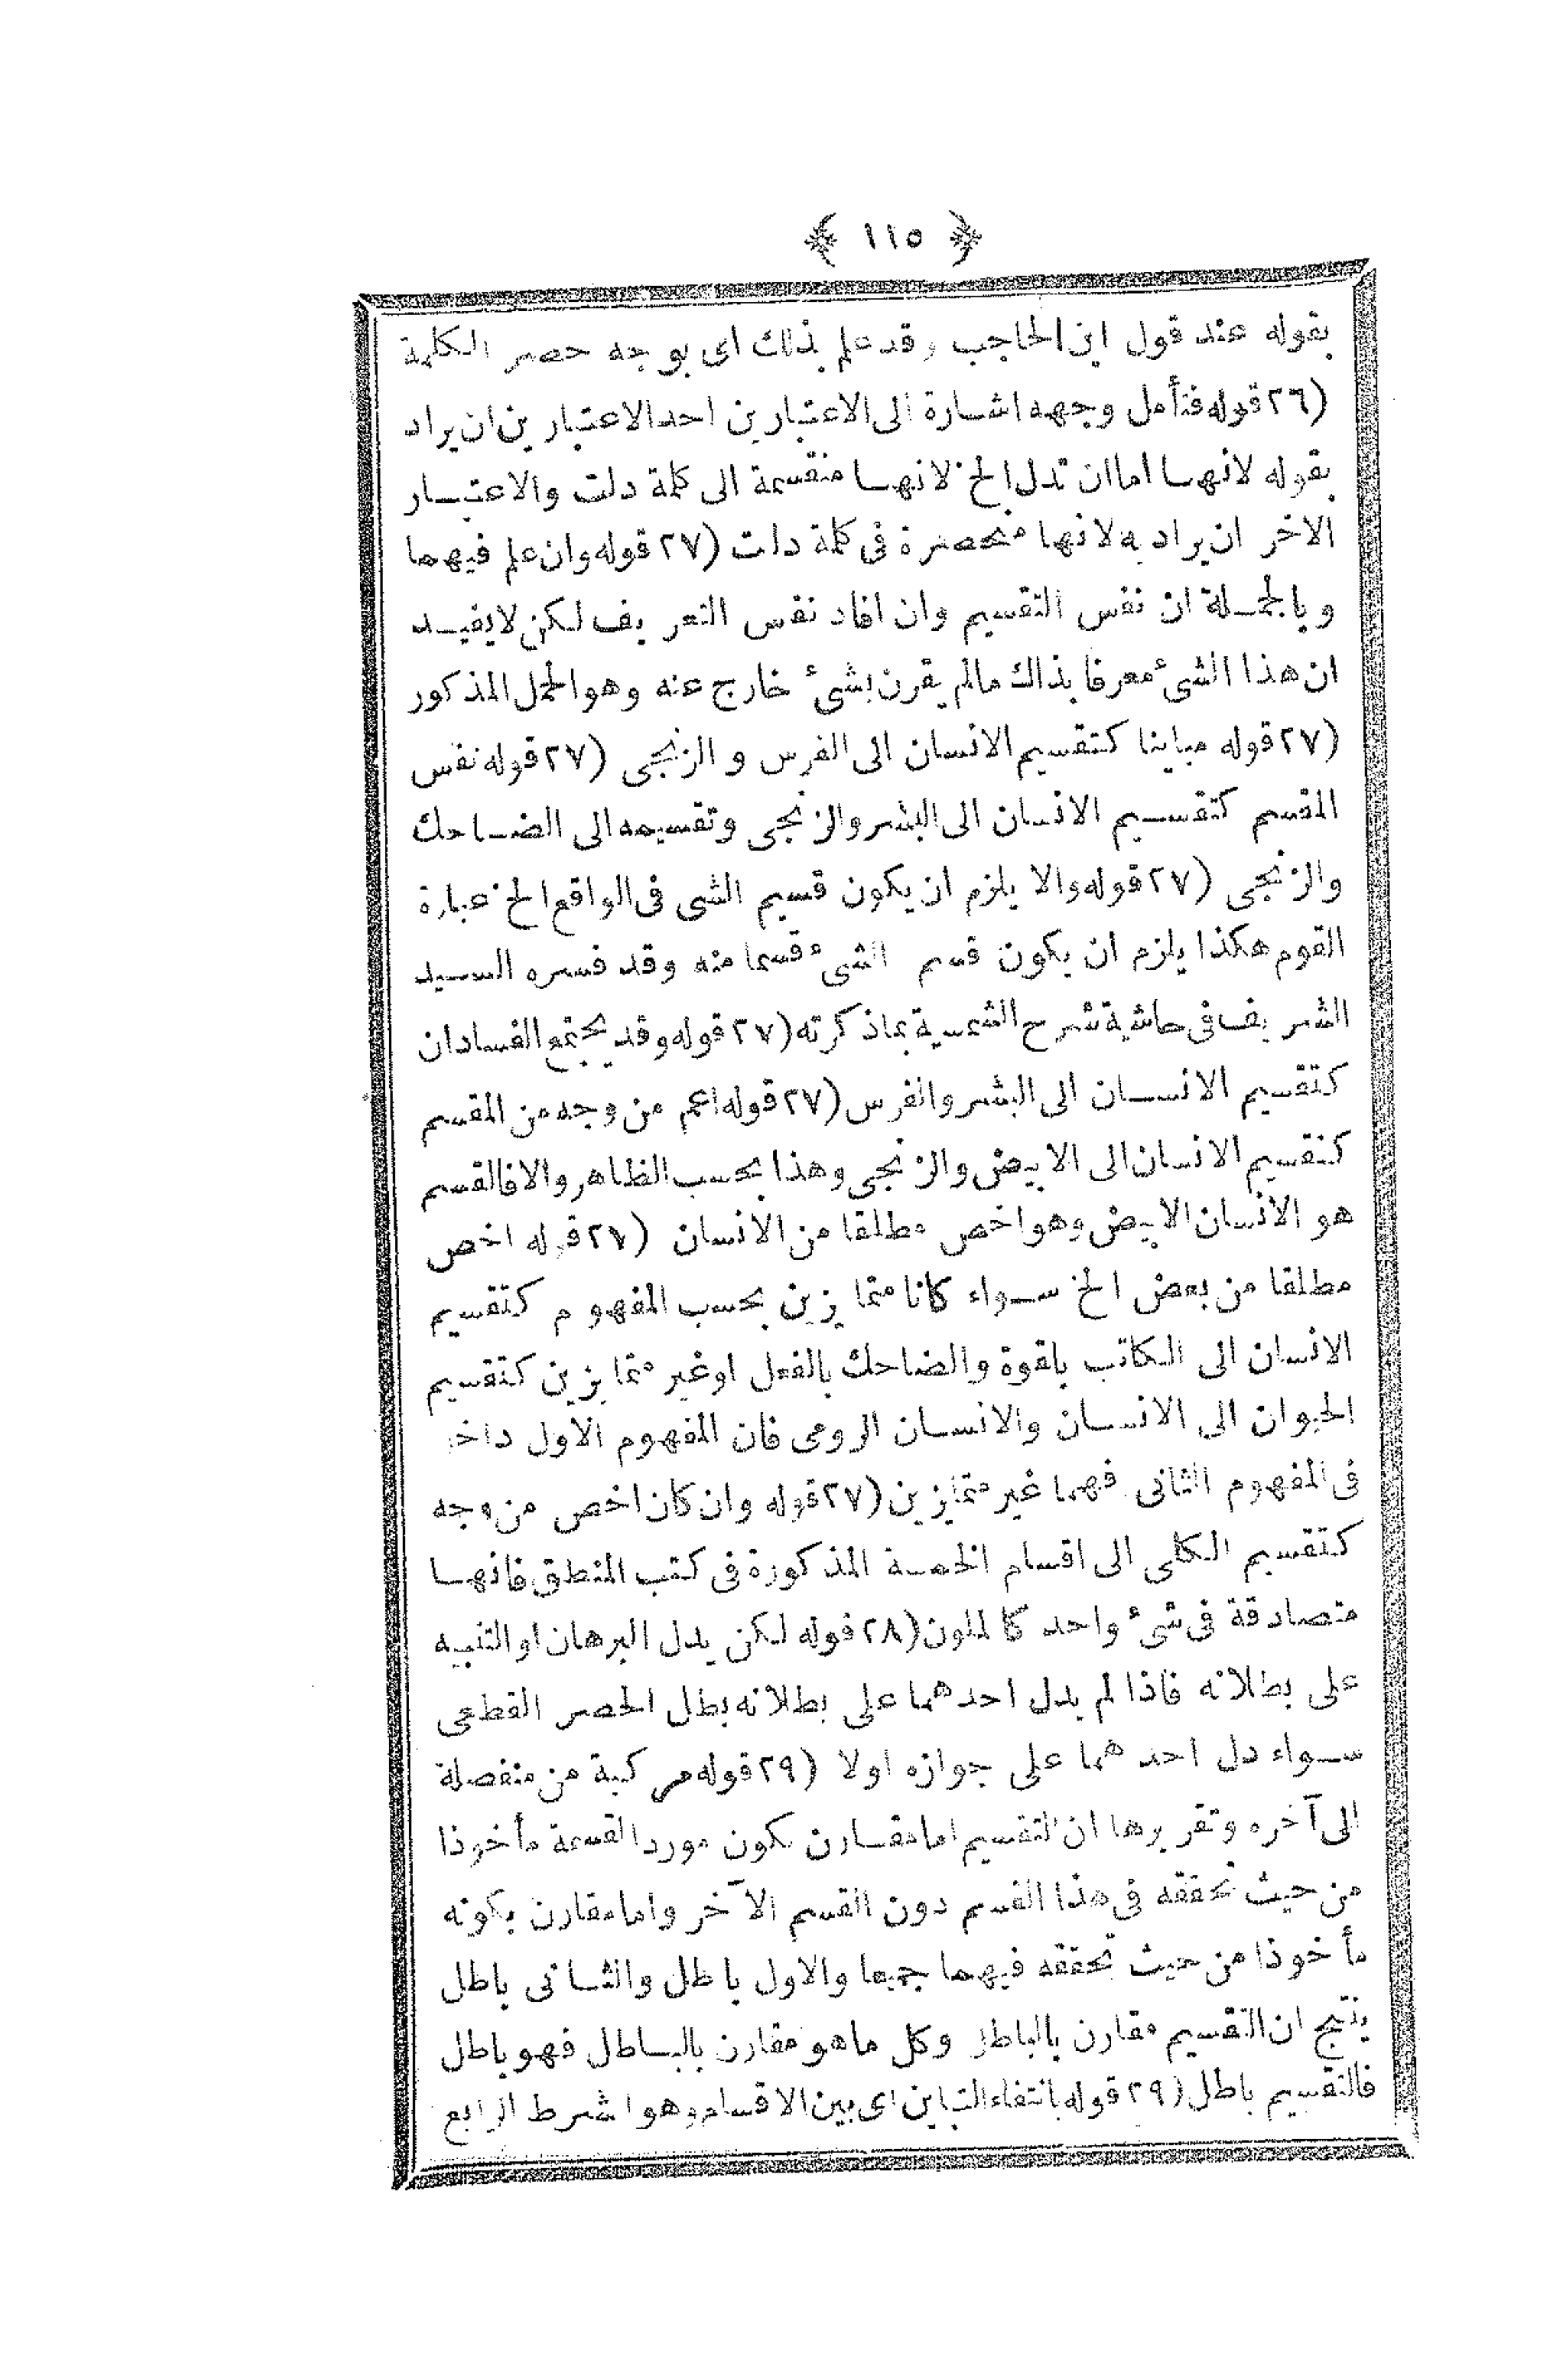 ﴿ ١١٥ ﴾
بقوله عند قول ابن الحاجب وقد علم بذلك اى بوجه حصر الكلمة
(٢٦ قوله فتأمل وجهه اشارة الى الاعتبارين احد الاعتبارين ان يراد
بقوله لانها اما ان تدل الخ لانها منقسمة الى كلمة دلت والاعتبار
الاخر ان يراد به لانها منحصرة فى كلمة دلت (٢٧ قوله وان علم فيهما
وبالجملة ان نفس التقسيم وان افاد نفس التعريف لكن لا يفيد
ان هذا الشئ معرفا بذاك مالم يقرن بشئ خارج عنه وهو الحمل المذكور
(٢٧ قوله مباينا كتقسيم الانسان الى الفرس والزنجى (٢٧ قوله نفس
المقسم كتقسيم الانسان الى البشر والزنجى وتقسيمه الى الضاحك
والزنجى (٢٧ قوله والا يلزم ان يكون قسيم الشى فى الواقع الخ عبارة
القوم هكذا يلزم ان يكون قسم الشئ قسما منه وقد فسره السيد
الشريف فى حاشية شرح الشمسية بماذكرته (٢٧ قوله وقد يجتمع الفسادان
كتقسيم الانسان الى البشر والفرس (٢٧ قوله اعم من وجه من المقسم
كتقسيم الانسان الى الابيض والزنجى وهذا بحسب الظاهر والا فالقسم
هو الانسان الابيض وهو اخص مطلقا من الانسان (٢٧ قوله اخص
مطلقا من بعض الخ سواء كانا متمايزين بحسب المفهوم كتقسيم
الانسان الى الكاتب بالقوة والضاحك بالفعل او غير متمايزين كتقسيم
الحيوان الى الانسان والانسان الرومى فان المفهوم الاول داخل
فى المفهوم الثانى فهما غير متمايزين (٢٧ قوله وان كان اخص من وجه
كتقسيم الكلى الى اقسام الخمسة المذكورة فى كتب المنطق فانها
متصادقة فى شئ واحد كالملون (٢٨ قوله لكن يدل البرهان او التنبيه
على بطلانه فاذا لم يدل احدهما على بطلانه بطل الحصر القطعى
سواء دل احدهما على جوازه اولا (٢٩ قوله مركبة من منفصلة
الى آخره وتقريرها ان التقسيم اما مقارن بكون مورد القسمة مأخوذا
من حيث تحققه فى هذا القسم دون القسم الآخر واما مقارن بكونه
مأخوذا من حيث تحققه فيهما جميعا والاول باطل والثانى باطل
ينتج ان التقسيم مقارن بالباطل وكل ماهو مقارن بالباطل فهو باطل
فالتقسيم باطل (٢٩ قوله بانتفاء التباين اى بين الاقسام وهو الشرط الرابع